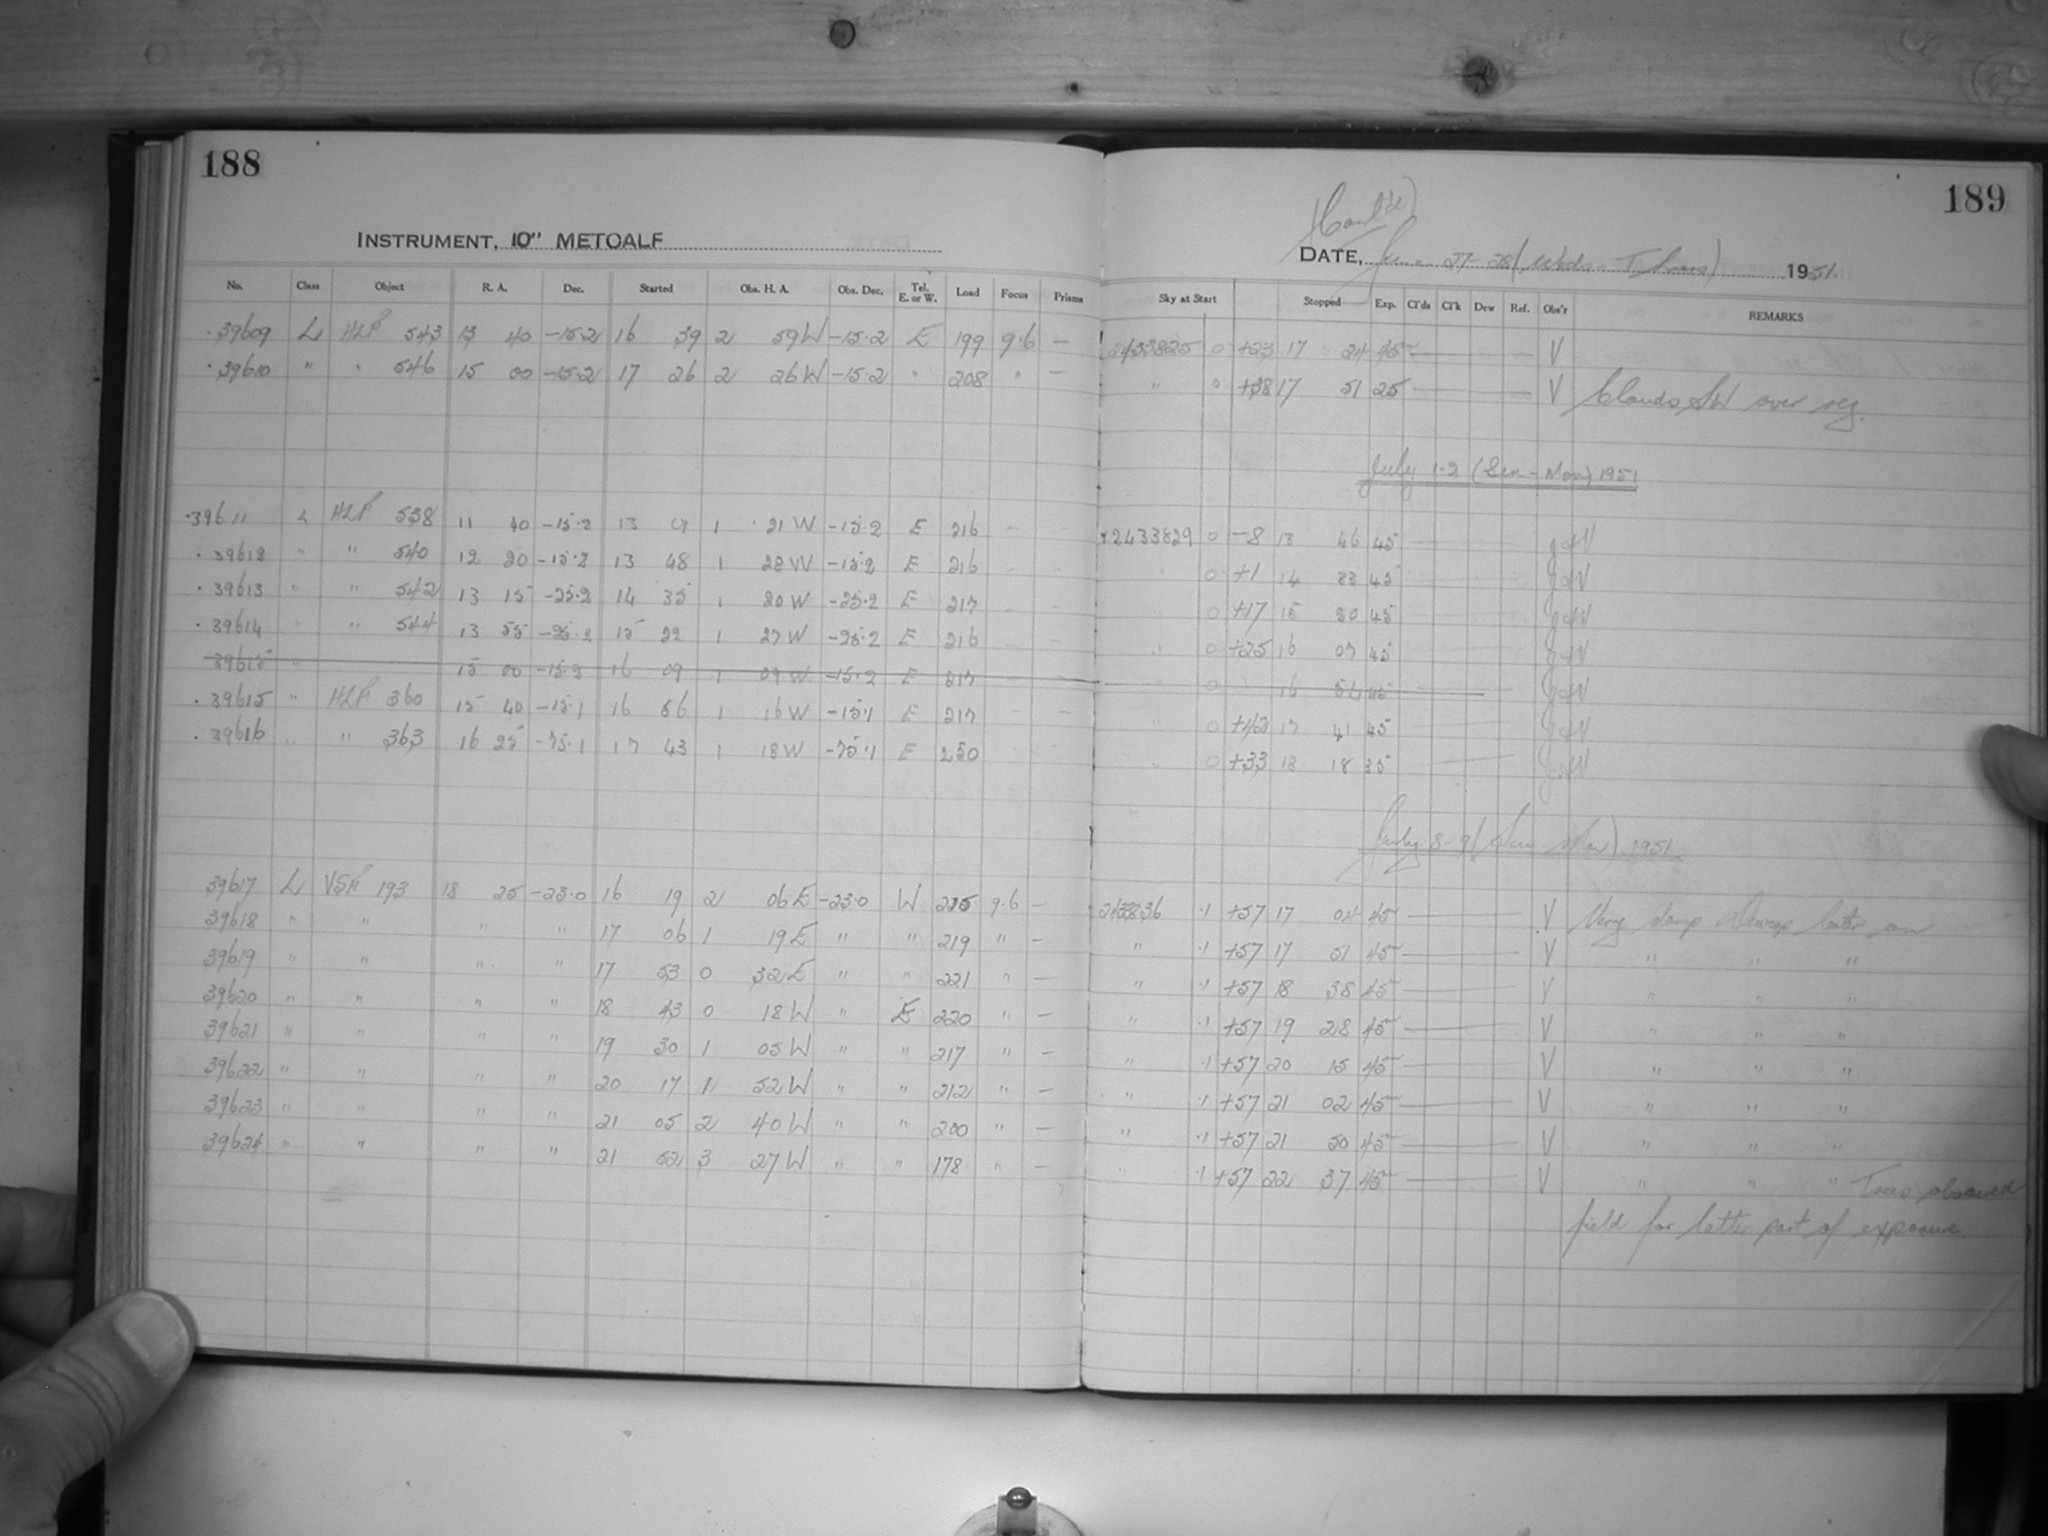 188
189
(Cont'd)
INSTRUMENT, 10" METCALF
DATE, June 27-28 (Weds-Thurs) 1951.
No. Class Object R. A. Dec. Started Obs. H. A. Obs. Dec. Tel. E. or W. Load Focus Prisms Sky at Start Stopped Exp. Cl'ds Cl'k Dew Ref. Obs'r REMARKS
.39609 L HLP 543 13 40 -15.2 16 39 2 59W -15.2 E 199 9.6 — 2433825 0 +23 17 24 45 V
.39610 " " 546 15 00 -15.2 17 26 2 26W -15.2 " 208 " — " 0 +38 17 51 25 V Clouds SW over reg.
July 1-2 (Sun-Mon) 1951
.39611 L HLP 538 11 40 -15.2 13 01 1 21W -15.2 E 216 - - 2433829 0 -8 13 46 45
.39612 " " 540 12 20 -15.2 13 48 1 28W -15.2 E 216 - - " 0 +1 14 33 45
.39613 " " 542 13 15 -25.2 14 35 1 20W -25.2 E 217 - - " 0 +17 15 20 45
.39614 " " 544 13 55 -25.2 15 22 1 27W -25.2 E 216 - - " 0 +25 16 07 45
39615 " 15 00 -15.2 16 09 1 09W -15.2 E 217 " 0 16 54 45
.39615 " HLP 360 15 40 -15.1 16 56 1 16W -15.1 E 217 - - " 0 +42 17 41 45
.39616 " " 363 16 25 -75.1 17 43 1 18W -75.1 E 250 " 0 +33 18 18 35
July 8-9 (Sun-Mon). 1951.
39617 L VSP 193 18 25 -23.0 16 19 2 06E -23.0 W 215 9.6 — 2433836 .1 +57 17 04 45 V Very damp Dewcap heater on
39618 " " " " 17 06 1 19E " " 219 " — " .1 +57 17 51 45 V " " "
39619 " " " " 17 53 0 32E " " 221 " — " .1 +57 18 38 45 V " " "
39620 " " " " 18 43 0 18W " E 220 " — " .1 +57 19 28 45 V " " "
39621 " " " " 19 30 1 05W " " 217 " — " .1 +57 20 15 45 V " " "
39622 " " " " 20 17 1 52W " " 212 " — " .1 +57 21 02 45 V " " "
39623 " " " " 21 05 2 40W " " 200 " — " .1 +57 21 50 45 V " " "
39624 " " " " 21 52 3 27W " " 178 " — " .1 +57 22 37 45 V " " " Trees obscured
field for latter part of exposure.